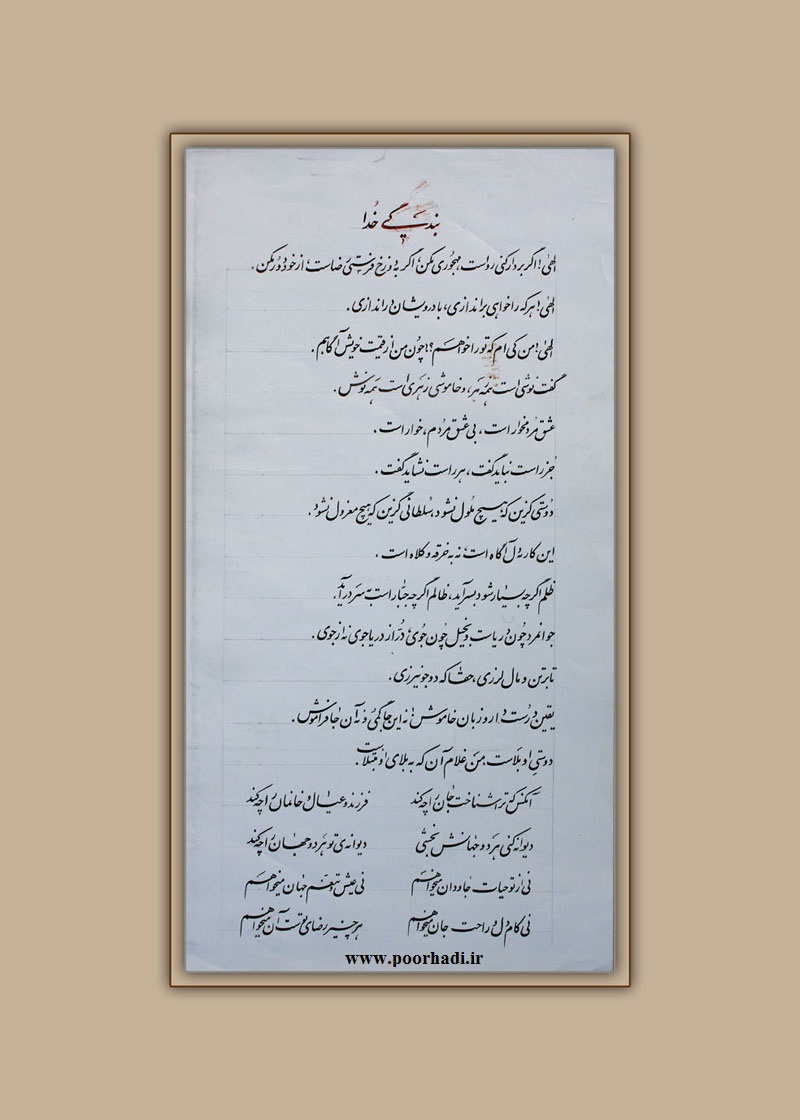 بندگی خُدا
الهی! اگر بردار کنی رواست، مهجوری مکن؛ اگر به دوزخ فرستی رضاست، از خود دور مکن.
الهی! هر که را خواهی براندازی، با درویشان دراندازی.
الهی! من کی ام که تو را خواهم؟! چون من از قیمت خویش آگاهم.
گفت نوشی است همه زهر، و خاموشی زهری است همه نوش.
عشق مردمخوار است، بی عشق مردم، خوار است.
جُز راست نباید گفت، هر راست نشاید گفت.
دوستی گزین که هیچ ملول نشود، سُلطانی گزین که هیچ معزول نشود.
این کار دل آگاه است، نه به خرقه و کلاه است.
ظلم اگرچه بسیار شود بسرآید، ظالم اگرچه جبّار است به سر درآید.
جوانمرد چون دریاست و بخیل چون جوی؛ دُر از دریا جوی نه از جوی.
تا بر تن و مال لرزی، حقا که دو جو نیرزی.
یقین درست دار و زبان خاموش؛ نه این جا گمی و نه آن جا فراموش.
دوستی او بلاست، من غلام آن که به بلای او مبتلاست.
آنکس که تو را شناخت جان را چه کند فرزند و عیال و خانمان را چه کند
دیوانه کنی هر دو جهانش بخشی دیوانه‌ی تو هر دو جهان را چه کند
نی از تو حیات جاودان میخواهم نی عیش و تنعّم جهان میخواهم
نی کام دل و راحت جان میخواهم هر چیز رضای توست آن میخواهم
www.poorhadi.ir